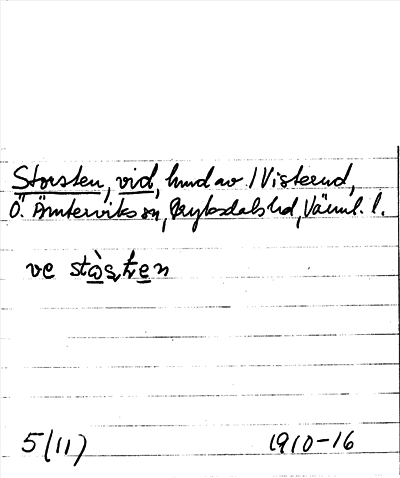 Storsten, vid, hmd av / Visterud,
Ö. Ämterviks sn, Fryksdals hd, Värml. l.
ve
5/11) 1910-16